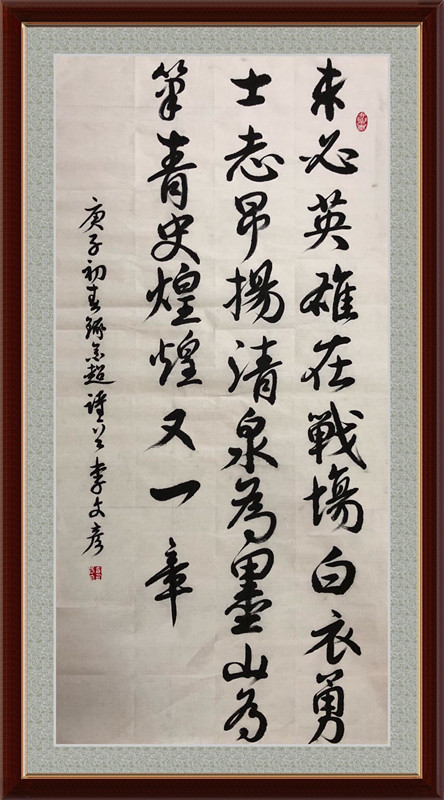 未必英雄在戰場白衣勇
士志昂揚清泉為墨山為
筆青史煌煌又一章
庚子初春錄余超譯 李文彥